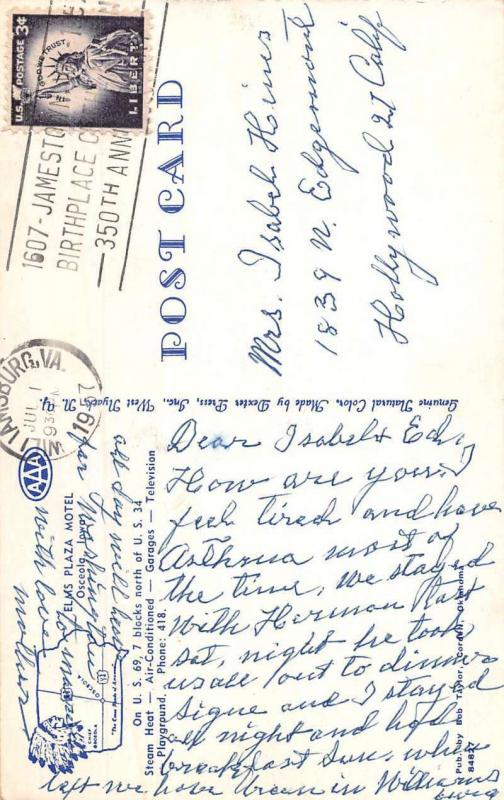 U.S. POSTAGE 3¢
IN GOD WE TRUST
LIBERTY
1607-JAMESTO
BIRTHPLACE O
350TH ANN
WILLIAMSBURG, VA.
JUL 1
930 A
1957
POST CARD
Mrs. Isabel Hines
1839 N. Edgemont
Hollywood 27 Calif
Genuine Natural Color, Made by Dexter Press, Inc., West Nyack, N. Y.
AAA
ELMS PLAZA MOTEL
Osceola, Iowa
On U. S. 69, 7 blocks north of U. S. 34
Steam Heat — Air-Conditioned — Garages — Television
Playground. Phone: 418.
OSCEOLA
Pub. by Bob Taylor, Cordell, Oklahoma
84827
Dear Isabel & Ed,
How are you, I
feel tired and have
Asthma most of
the time, we stayed
with Herman
Sat, night he took
us all out to dinner
Signe and I stayed
all night and had
breakfast Sun. when
left we have been in Williams
burg
all day will leave
for Washington
tomorrow
with love
mother